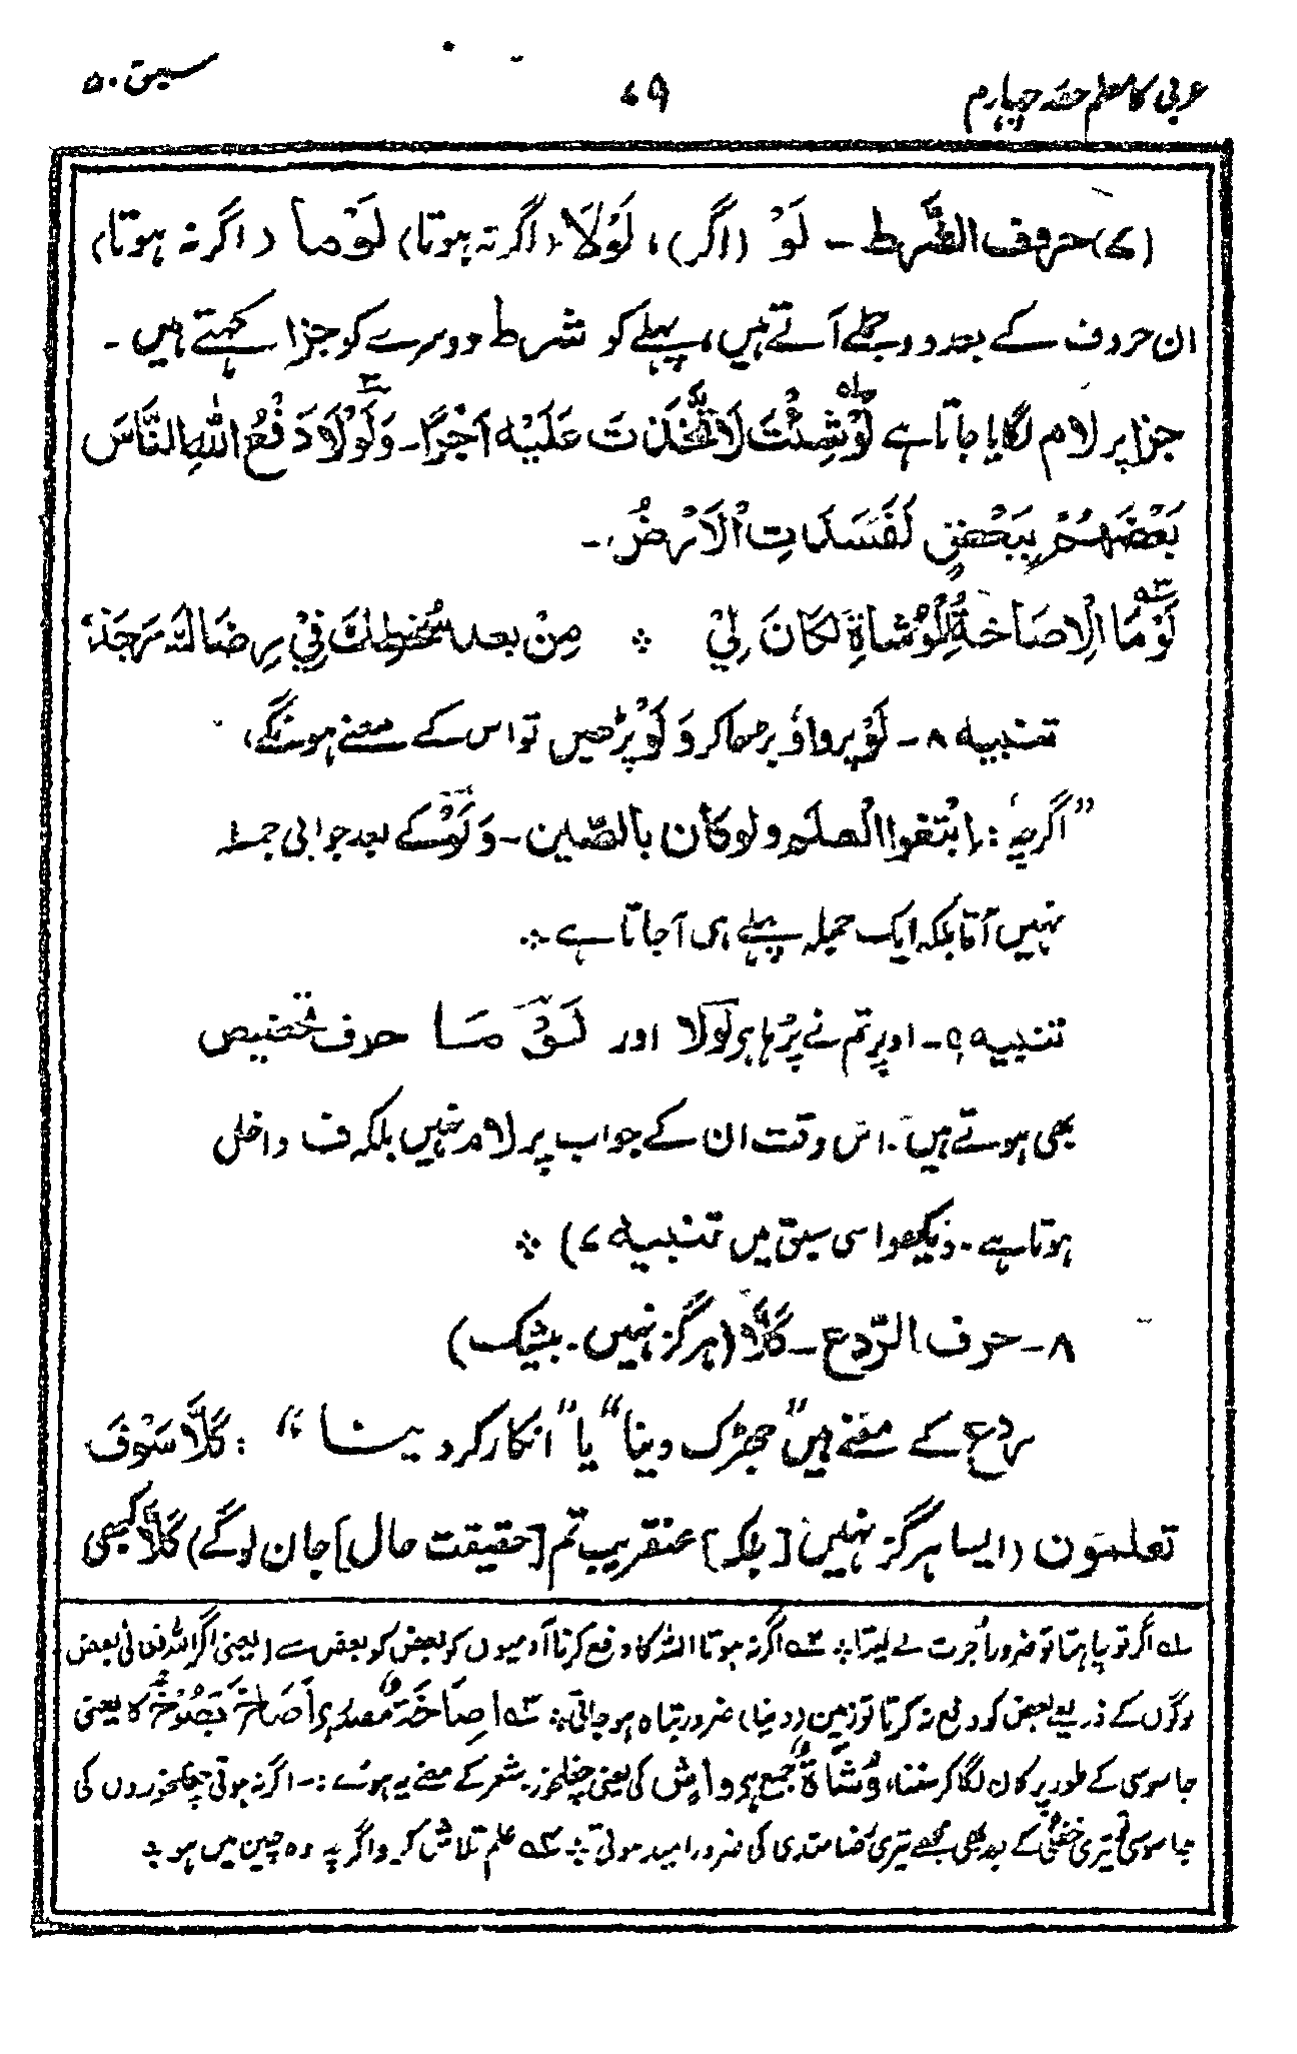 عربی کا معلم حصّہ چہارم ۷۹ سبق ۵۰
(۷) حروف الشَّرط ۔ لَوْ (اگر)، لَوْلَا (اگر نہ ہوتا) لَوْمَا (اگر نہ ہوتا)
ان حروف کے بعد دو جملے آتے ہیں، پہلے کو شرط دوسرے کو جزا کہتے ہیں ۔
جزا پر لام لگایا جاتا ہے لَوْ شِئْتَ لَاتَّخَذْتَ عَلَيْهِ اَجْرًا۔ وَلَوْلَا دَفْعُ اللّٰهِ النَّاسَ
بَعْضَهُمْ بِبَعْضٍ لَفَسَدَتِ الْاَرْضُ ۔
لَوْ مَا الْاِصَاخَةُ لِلْوُشَاةِ لَكَانَ لِيْ ؞ مِنْ بعد سُخْطِكَ فِيْ رِضَائِكَ مَرجَاءُ
تنبیہ ۸ ۔ لَوْ پر واؤ بڑھا کر وَلَوْ پڑھیں تو اس کے معنے ہونگے،
”اگرچہ“: اِبْتَغوا العلمَ ولو كان بالصّين ۔ وَلَوْ کے بعد جوابی جملہ
نہیں آتا بلکہ ایک جملہ پہلے ہی آجاتا ہے ؞
تنبیہ ۹ ۔ اوپر تم نے پڑہا ہے لَوْلَا اور لَوْ مَا حرف تحضیض
بھی ہوتے ہیں ۔ اس وقت ان کے جواب پر لام نہیں بلکہ ف داخل
ہوتا ہے ۔ دیکھو اسی سبق میں تنبیہ ۷) ؞
۸ ۔ حرف الرّدع ۔ كَلَّا (ہرگز نہیں ۔ بیشک)
ردع کے معنے ہیں ”جھڑک دینا“ یا ”انکار کر دینا“ : كَلَّا سَوْفَ
تعلمون (ایسا ہرگز نہیں [بلکہ] عنقریب تم [حقیقت حال] جان لوگے) كَلَّا کبھی
۱؎ اگر تو چاہتا تو ضرور اُجرت لے لیتا ؞ ۲؎ اگر نہ ہوتا اللہ کا دفع کرنا آدمیوں کو بعض کو بعض سے (یعنی اگر اللہ تعالیٰ بعض
لوگوں کے ذریعے بعض کو دفع نہ کرتا تو زمین (دنیا) ضرور تباہ ہو جاتی ؞ ۳؎ اِصَاخَةٌ مصدر ہے اَصَاخَ يُصِيْخُ کا یعنی
جاسوسی کے طور پر کان لگا کر سننا، وُشَاةٌ جمع ہے واشٍ کی یعنی چغلخور۔ شعر کے معنے یہ ہوئے :- اگر نہ ہوتی چغلخوروں کی
جاسوسی تو تیری خفگی کے بعد بھی مجھے تیری رضامندی کی ضرور امید ہوتی ؞ ۴؎ علم تلاش کرو اگرچہ وہ چین میں ہو ؞